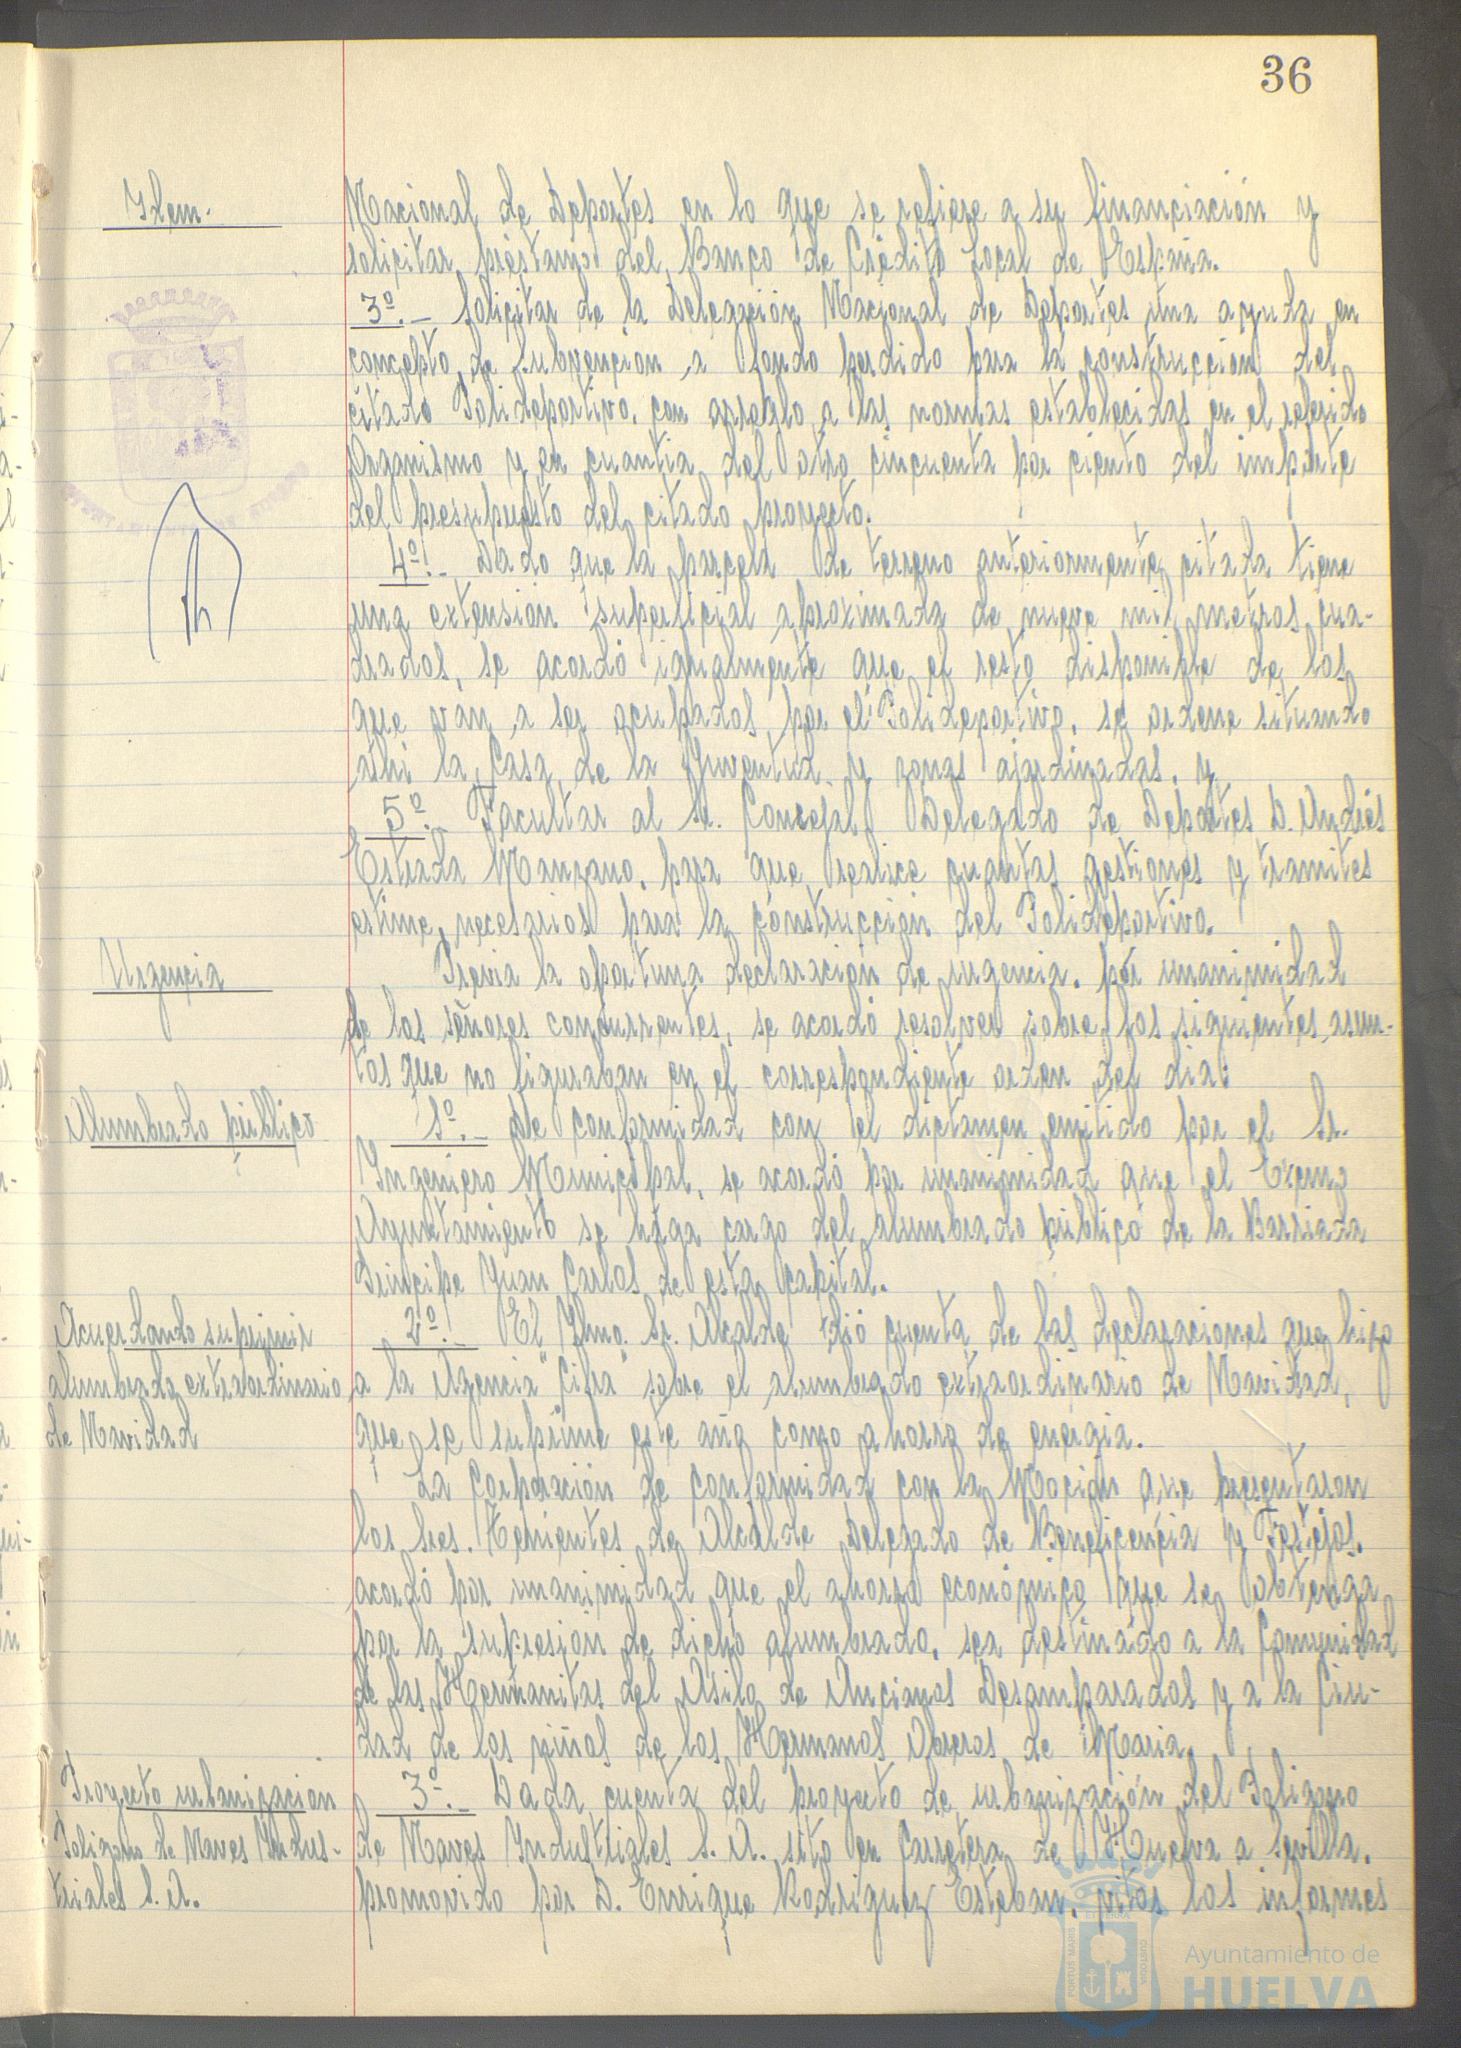 36
Idem.
Nacional de Deportes en lo que se refiere a su financiación y
solicitar préstamo del Banco de Crédito Local de España.
3º.- Solicitar de la Delegación Nacional de Deportes una ayuda en
concepto de subvención a fondo perdido para la construcción del
citado Polideportivo, con arreglo a las normas establecidas en el referido
Organismo y en cuantía del otro cincuenta por ciento del importe
del presupuesto del citado proyecto.
4º.- Dado que la parcela de terreno anteriormente citada tiene
una extensión superficial aproximada de nueve mil metros cua-
drados, se acordó igualmente que el resto disponible de los
que van a ser ocupados por el Polideportivo, se ordene situando
allí la Casa de la Juventud y zonas ajardinadas, y
5º.- Facultar al Sr. Concejal Delegado de Deportes D. Andrés
Estrada Manzano, para que realice cuantas gestiones y trámites
estime necesarios para la construcción del Polideportivo.
Urgencia
Previa la oportuna declaración de urgencia, por unanimidad
de los señores concurrentes, se acordó resolver sobre los siguientes asun-
tos que no figuraban en el correspondiente orden del día:
Alumbrado público
1º.- De conformidad con el dictamen emitido por el Sr.
Ingeniero Municipal, se acordó por unanimidad que el Excmo
Ayuntamiento se haga cargo del alumbrado público de la Barriada
Príncipe Juan Carlos de esta capital.
Acuerdando suprimir
alumbrado extraordinario
de Navidad
2º.- El Ilmo. Sr. Alcalde dió cuenta de las declaraciones que hizo
a la Agencia "Cifra" sobre el alumbrado extraordinario de Navidad,
que se suprime este año como ahorro de energía.
La Corporación de conformidad con la Moción que presentaron
los Sres. Tenientes de Alcalde Delegado de Beneficencia y Festejos,
acordó por unanimidad que el ahorro económico que se obtenga
por la supresión de dicho alumbrado, sea destinado a la Comunidad
de las Hermanitas del Asilo de Ancianos Desamparados y a la Ciu-
dad de los niños de los Hermanos Obreros de María.
Proyecto urbanización
Polígono de Naves Indus-
triales S. A.
3º.- Dada cuenta del proyecto de urbanización del Polígono
de Naves Industriales S. A. sito en Carretera de Huelva a Sevilla,
promovido por D. Enrique Rodríguez Esteban, vitos los informes
Ayuntamiento de
HUELVA